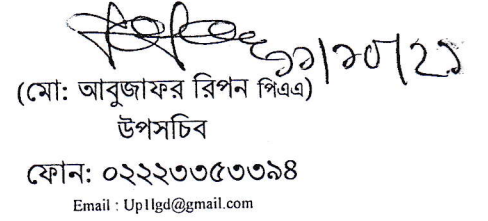 ১১/১০/২১
(মো: আবুজাফর রিপন পিএএ)
উপসচিব
ফোন: ০২২২৩৩৫৩৩৯৪
Email : Up1lgd@gmail.com